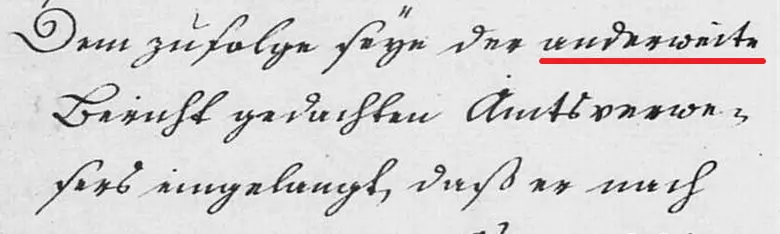 Dem zufolge seÿe der anderweite
Bericht gedachten Amtsverwe-
sers eingelangt, daß er nach